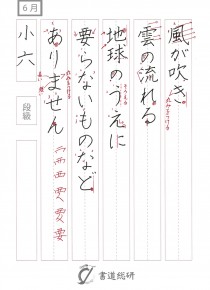 6月
風が吹き
雲の流れる
地球のうえに
要らないものなど
ありません
襾 西 要 要 要
小六
段級
書道総研